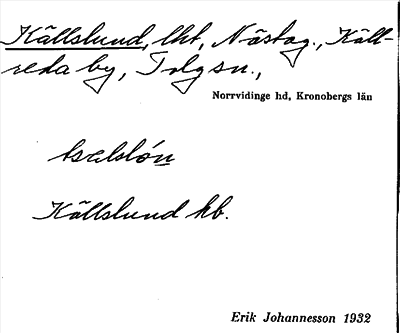 Källslund, lht, Nästag., Käll-
reda by, Tolg sn.,
Norrvidinge hd, Kronobergs län
Källslund hb.
Erik Johannesson 1932